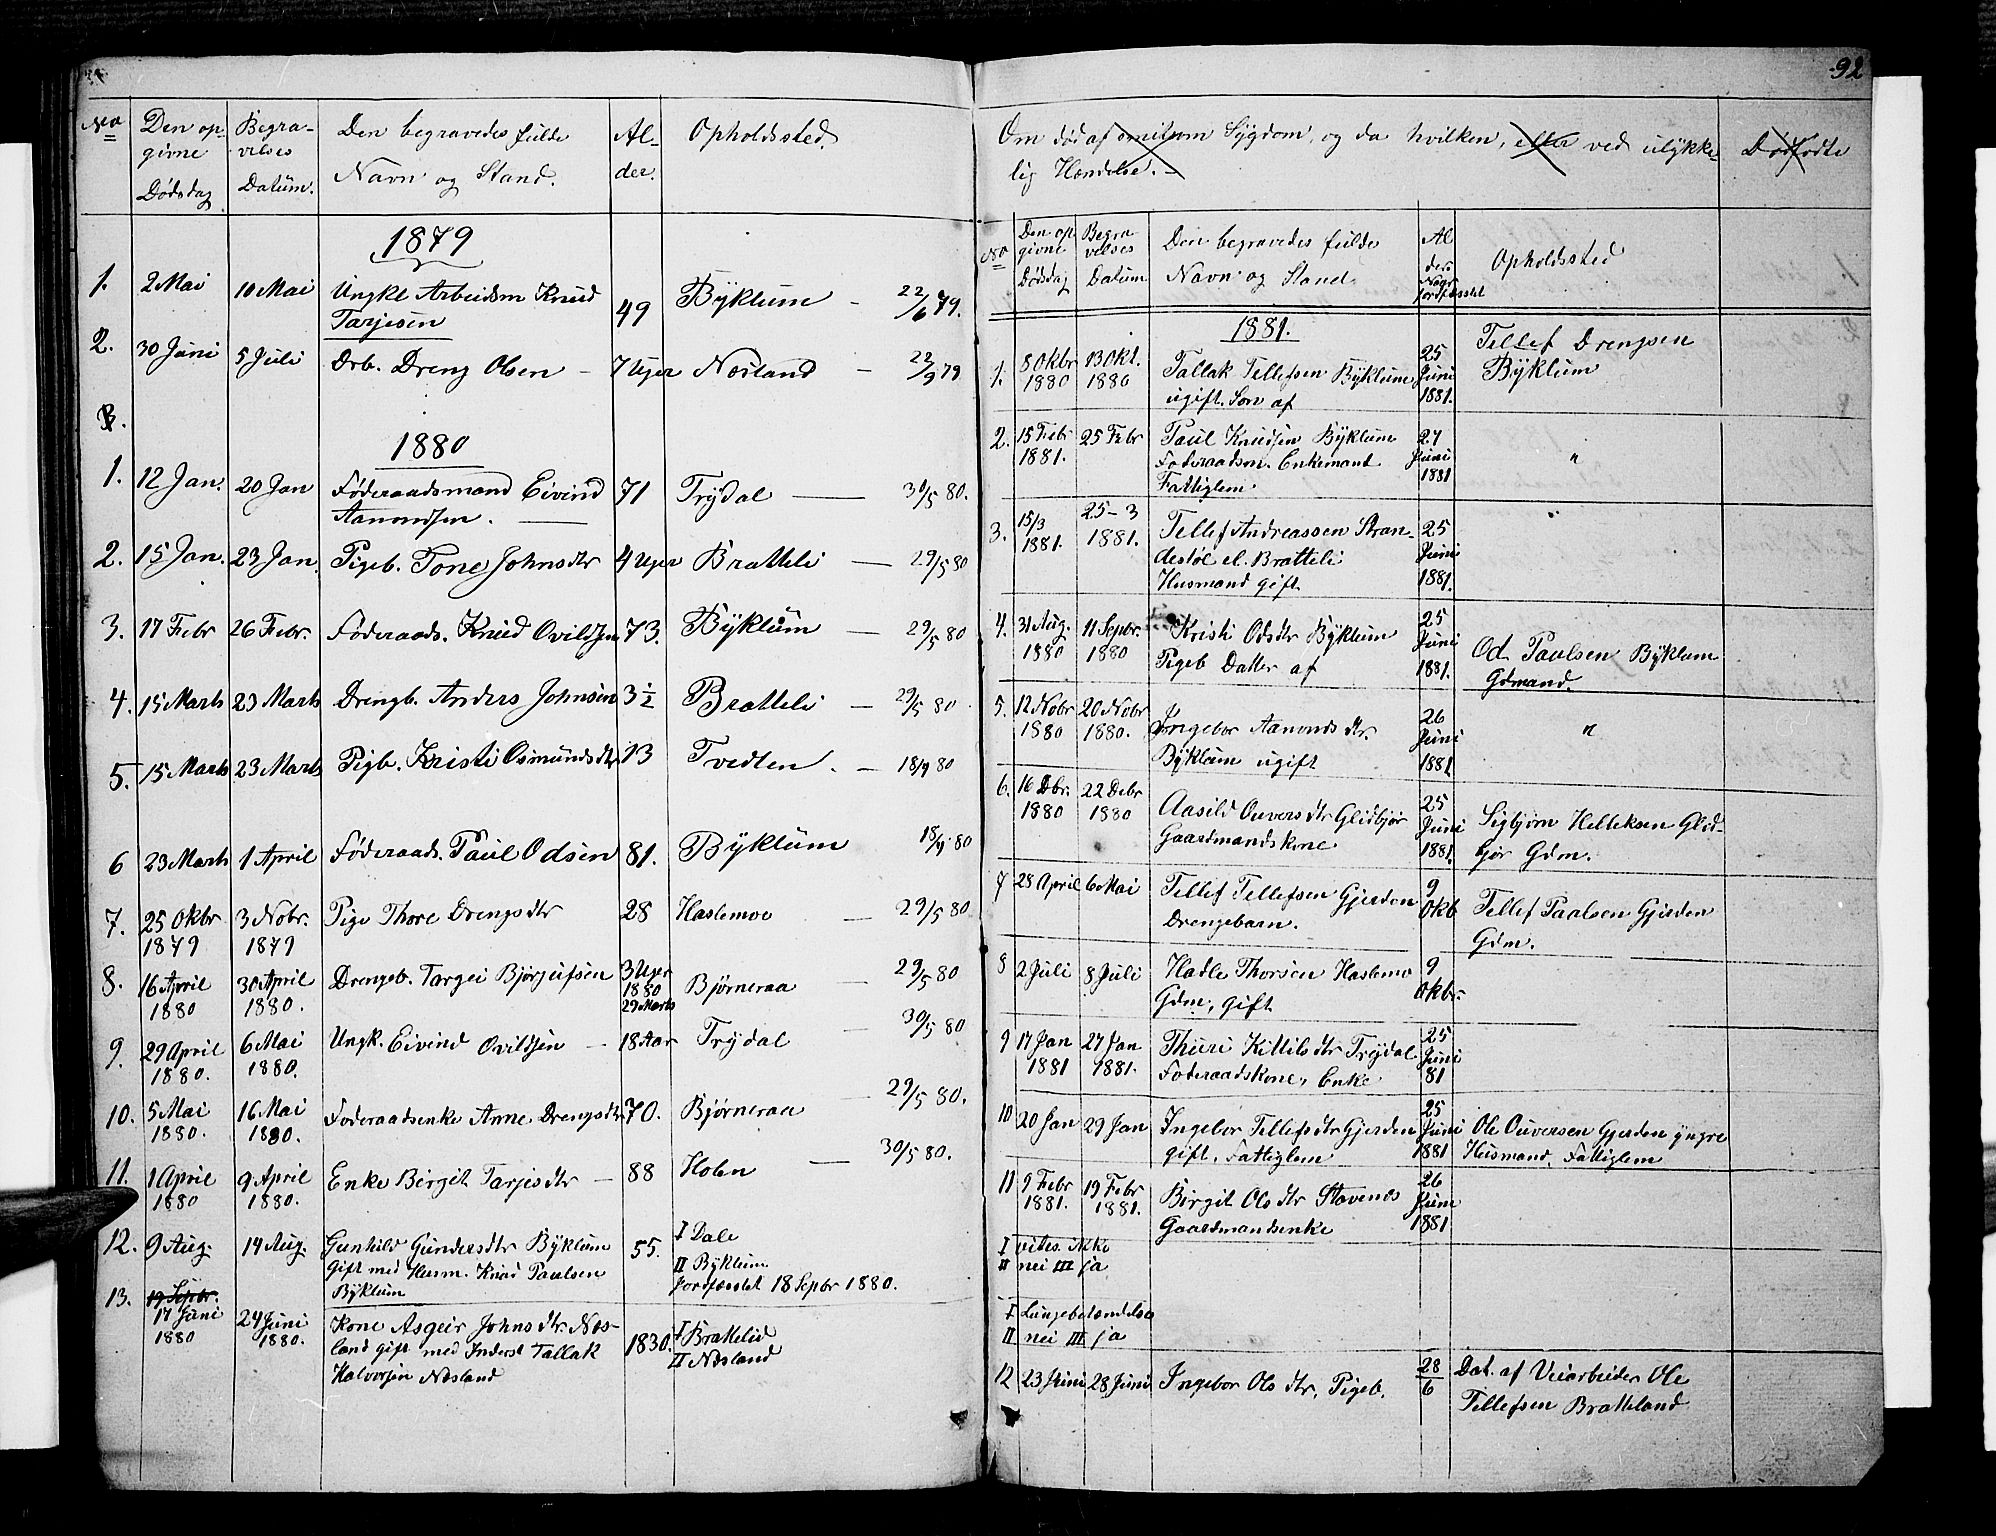 92
No
Den op-
givne
Dødsdag
Begra-
velses
Datum.
Den begravedes fulde
Navn og Stand.
Al-
der.
Opholdssted.
1879
1. 2 Mai 10 Mai Ungkl Arbeidsm Knud
Tarjesen 49 Byklum – 22/6 79.
2. 30 Juni 5 Juli Drb. Dreng Olsen – 7 Uger Nesland – 22/9 79
3.
1880
1. 12 Jan. 20 Jan Føderaadsmand Eivind
Aamondsen. 71 Trydal – 30/5 80.
2. 15 Jan. 23 Jan. Pigeb. Tone Johnsdtr 4 Uger Bratteli – 29/5 80
3. 17 Febr 26 Febr. Føderaads. Knud Ovildsen 73. Byklum – 29/5 80
4. 15 Marts 23 Marts Drengb. Anders Johnsen 3½ Bratteli – 29/5 80
5. 15 Marts 23 Marts Pigb. Kristi Osmundsdtr 13 Tvedten. – 18/9 80
6 23 Marts 1 April Føderaads. Paul Odsen 81. Byklum 18/9 80
7. 25 Okbr 3 Nobr. Pige Thore Drengsdtr 28 Haslemoe – 29/5 80
1879 1879
8. 16 April 30 April Drengeb. Targei Bjørjufsen 3 Uger Bjørneraa – 29/5 80
1880 1880. 1880
29 Marts
9. 29 April 6 Mai Ungk. Eivind Ovildsen – 18 Aar Trydal – 30/5 80
1880. 1880.
10. 5 Mai 16 Mai Føderaadsenke Anne Drengsdtr 70. Bjørneraa – 29/5 80.
1880. 1880.
11. 1 April 9 April Enke Birgit Tarjesdtr – 88 Holen – 30/5 80.
1880 1880.
12. 9 Aug. 14 Aug. Gunhild Gundersdtr Byklum 55. I Dale
Gift med Husm. Knud Paulsen II Byklum
Byklum Jordfæstet 18 Sepbr 1880.
13. 19 Sepbr.
17 Juni 24 Juni Kone Asgeir Johnsdtr. Nes- 1830. I Brattelid
1880 1880. land gift med Inderst Tallak II Nesland
Halvorsen Nesland
Om død af Sygdom, og da hvilken, eller ved ulykke-
lig Hændelse. –
Dødfødte
No
Den op
givne
Dødsdag
Begra-
velses
Datum
Den begravedes fulde
Navn og Stand
Al
der
Naar
Jordfæstet
Opholdssted
1881.
1. 8 Okbr 13 Okt. Tallak Tellefsen Byklum 25 Tellef Drengsen
1880 1880 ugift. Søn af Juni Byklum
1881.
2. 15 Febr 25 Febr Paul Knudsen Byklum 27 "
1881. Føderaadsm. Enkemand Juni
Fattiglem. 1881
3. 15/3 25-3 Tellef Andreassen Stran- 25 "
1881. 1881. destøl el. Bratteli Juni
Husmand gift 1881.
4. 31 Aug. 11 Sepbr. Kristi Odsdtr Byklum 25
1880 1880 Pigeb Datter af Juni Od Paulsen Byklum
1881. Gdmand.
5. 12 Nobr 20 Nobr Ingebor Aamondsdtr. 26 "
1880 1880. Byklum ugift Juni
1881
6. 16 Dbr. 22 Debr Aasild Ouversdtr Glidbjør 25 Sigbjørn Helleksen Glid-
1880 1880 Gaardmandskone Juni bjør Gdm.
1881.
7 28 April 6 Mai Tellef Tellefsen Gjerden 9 Tellef Paalsen Gjerden
Drengebarn. Okb Gdm.
8 2 Juli 8 Juli Hadle Thorsen Haslemo 9
Gdm, gift Okbr.
9 17 Jan 27 Jan Thuri Kittilsdtr Trydal 25
1881 1881. Føderaadskone, Enke Juni
81
10 20 Jan 29 Jan Ingebor Tellefsdtr Gjerden 25 Ole Ouversen Gjerden yngre
gift. Fattiglem Juni Husmand, Fattiglem
1881
11 9 Febr 19 Febr Birgit Olsdtr Stavenes 26
1881. 1881. Gaardmandsenke Juni
1881
I vides ikke
II nei III ja
I Lungebetændelse
II nei III ja
12 23 Juni 28 Juni Ingebor Olsdtr. Pigeb. 28/6 Dat. af Veiarbeider Ole
Tellefsen Bratteland